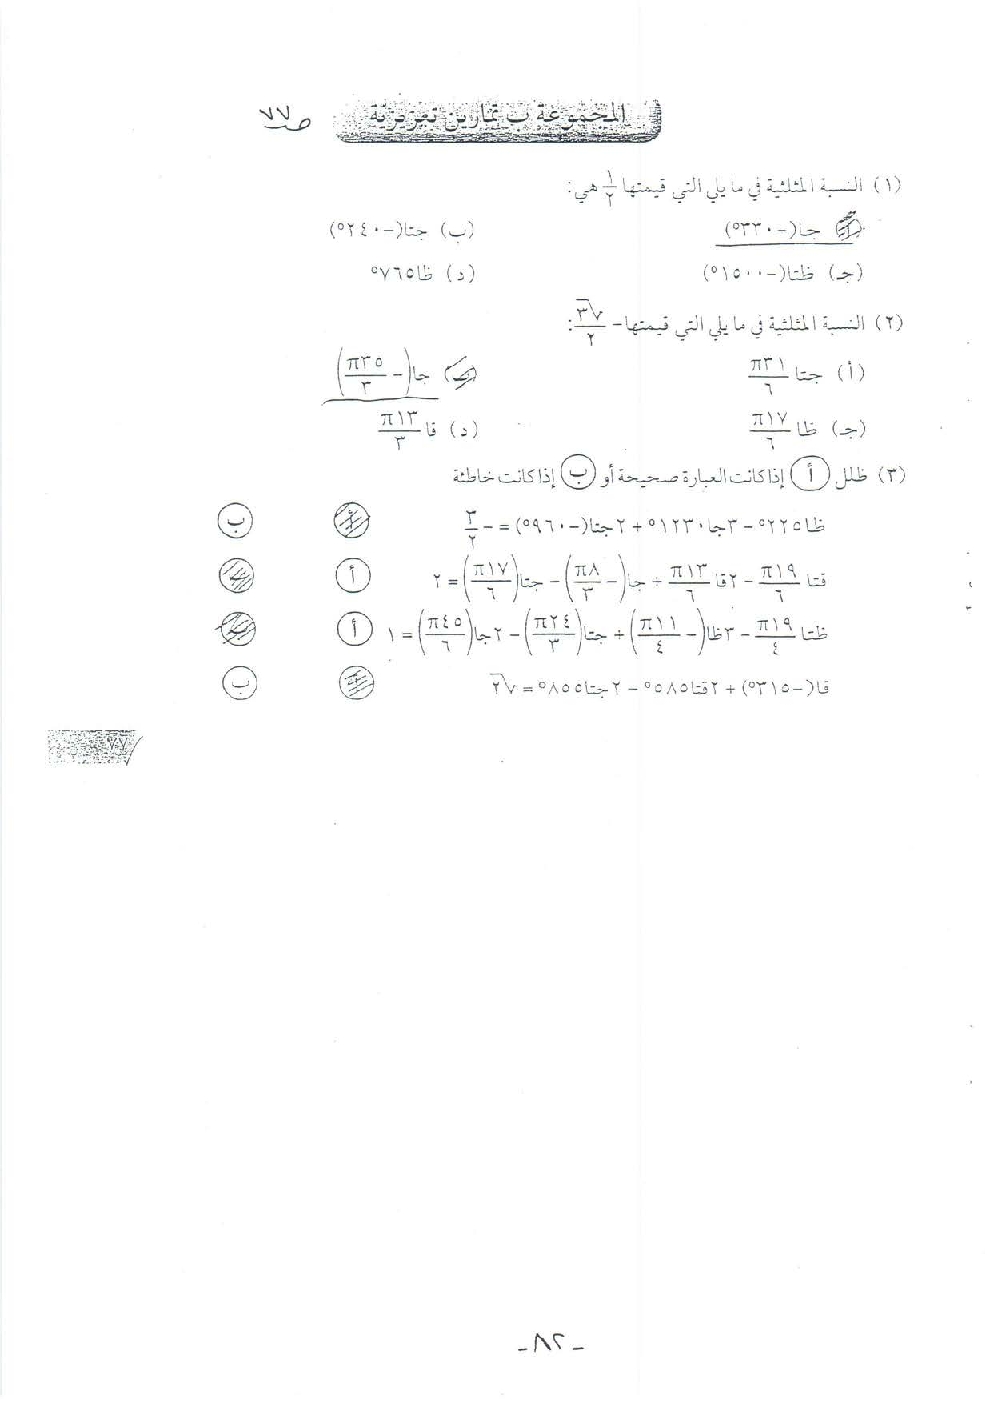 المجموعة ب تمارين تعزيزية ص٧٧
(١) النسبة المثلثية في ما يلي التي قيمتها ١/٢ هي:
(أ) جا(-٣٣٠°) (ب) جتا(-٢٤٠°)
(جـ) ظتا(-١٥٠٠°) (د) ظا٧٦٥°
(٢) النسبة المثلثية في ما يلي التي قيمتها -√٣/٢:
(أ) جتا ٣١π/٦ (ب) جا(-٣٥π/٣)
(جـ) ظا ١٧π/٦ (د) قا ١٣π/٣
(٣) ظلل (أ) إذا كانت العبارة صحيحة أو (ب) إذا كانت خاطئة
ظا٢٢٥° - ٣جا١٢٣٠° + ٢جتا(-٩٦٠°) = -٣/٢ أ ب
قتا ١٩π/٦ - ٢قا ١٣π/٦ ÷ جا(-٨π/٣) - جتا(١٧π/٦) = ٢ أ ب
ظتا ١٩π/٤ - ٣ظا(-١١π/٤) + جتا(٢٤π/٣) - ٢جا(٤٥π/٦) = ١ أ ب
قا(-٣١٥°) + ٢قتا٥٨٥° - ٢جتا٨٥٥° = √٢ أ ب
٧٧
- ٨٢ -